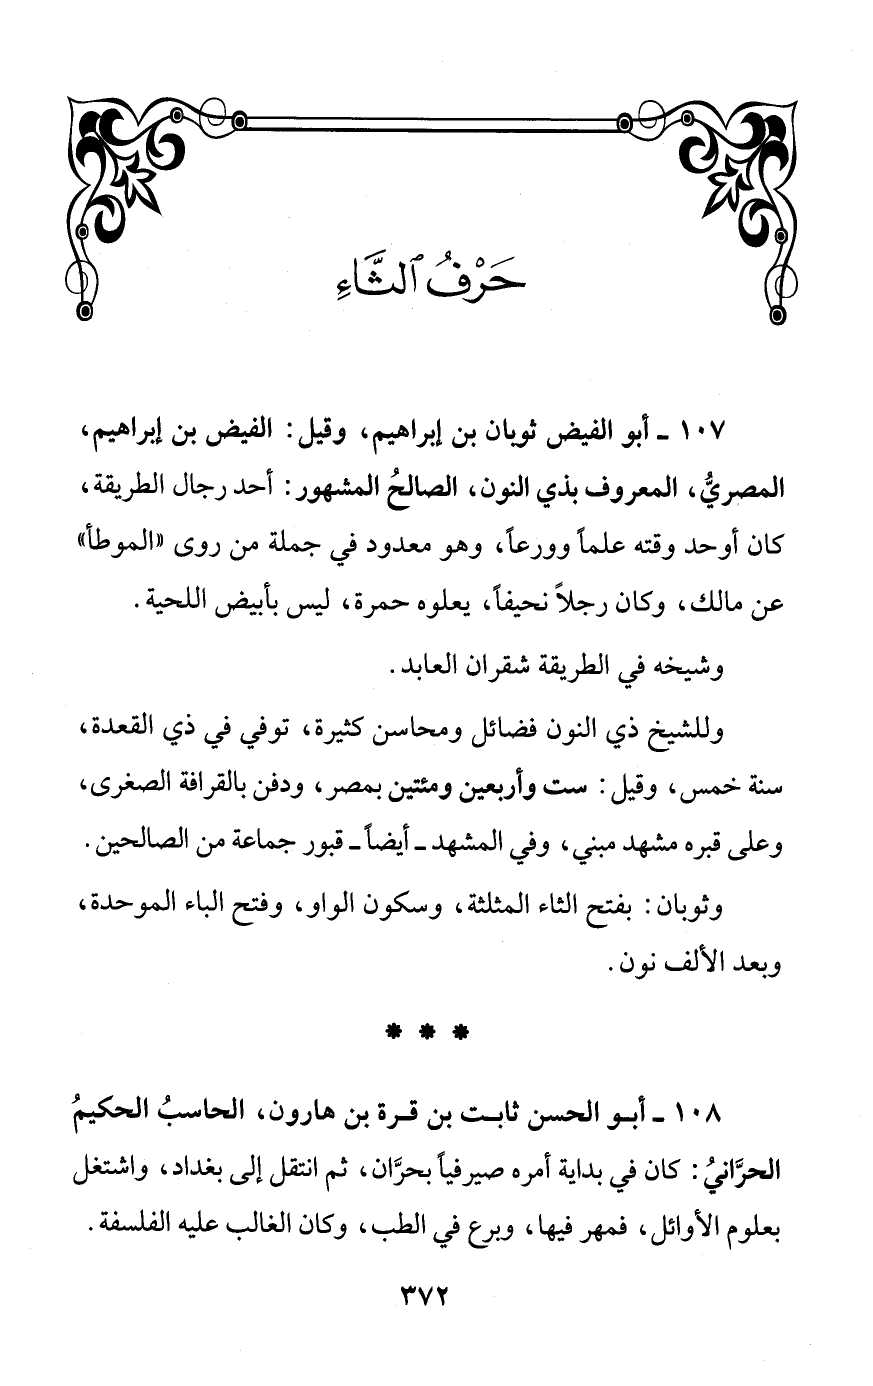 حَرْفُ ٱلثَّاءِ
١٠٧ ـ أبو الفيض ثوبان بن إبراهيم، وقيل: الفيض بن إبراهيم،
المصريُّ، المعروف بذي النون، الصالحُ المشهور: أحد رجال الطريقة،
كان أوحد وقته علماً وورعاً، وهو معدود في جملة من روى «الموطأ»
عن مالك، وكان رجلاً نحيفاً، يعلوه حمرة، ليس بأبيض اللحية.
وشيخه في الطريقة شقران العابد.
وللشيخ ذي النون فضائل ومحاسن كثيرة، توفي في ذي القعدة،
سنة خمس، وقيل: ست وأربعين ومئتين بمصر، ودفن بالقرافة الصغرى،
وعلى قبره مشهد مبني، وفي المشهد ـ أيضاً ـ قبور جماعة من الصالحين.
وثوبان: بفتح الثاء المثلثة، وسكون الواو، وفتح الباء الموحدة،
وبعد الألف نون.
* * *
١٠٨ ـ أبو الحسن ثابت بن قرة بن هارون، الحاسبُ الحكيمُ
الحرَّانيُّ: كان في بداية أمره صيرفياً بحرَّان، ثم انتقل إلى بغداد، واشتغل
بعلوم الأوائل، فمهر فيها، وبرع في الطب، وكان الغالب عليه الفلسفة.
٣٧٢